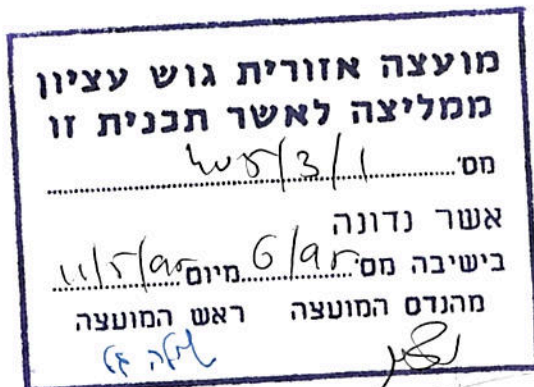 מועצה אזורית גוש עציון
ממליצה לאשר תכנית זו
מס' 405/3/1
אשר נדונה
בישיבה מס' 6/95 מיום 11/5/95
מהנדס המועצה ראש המועצה